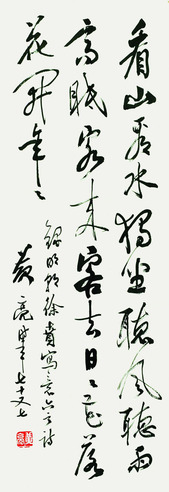 看山看水獨坐聽風聽雨
高眠客来客去日々花落
花開年々
錄明朝徐賁寫意六言詩
七十又七